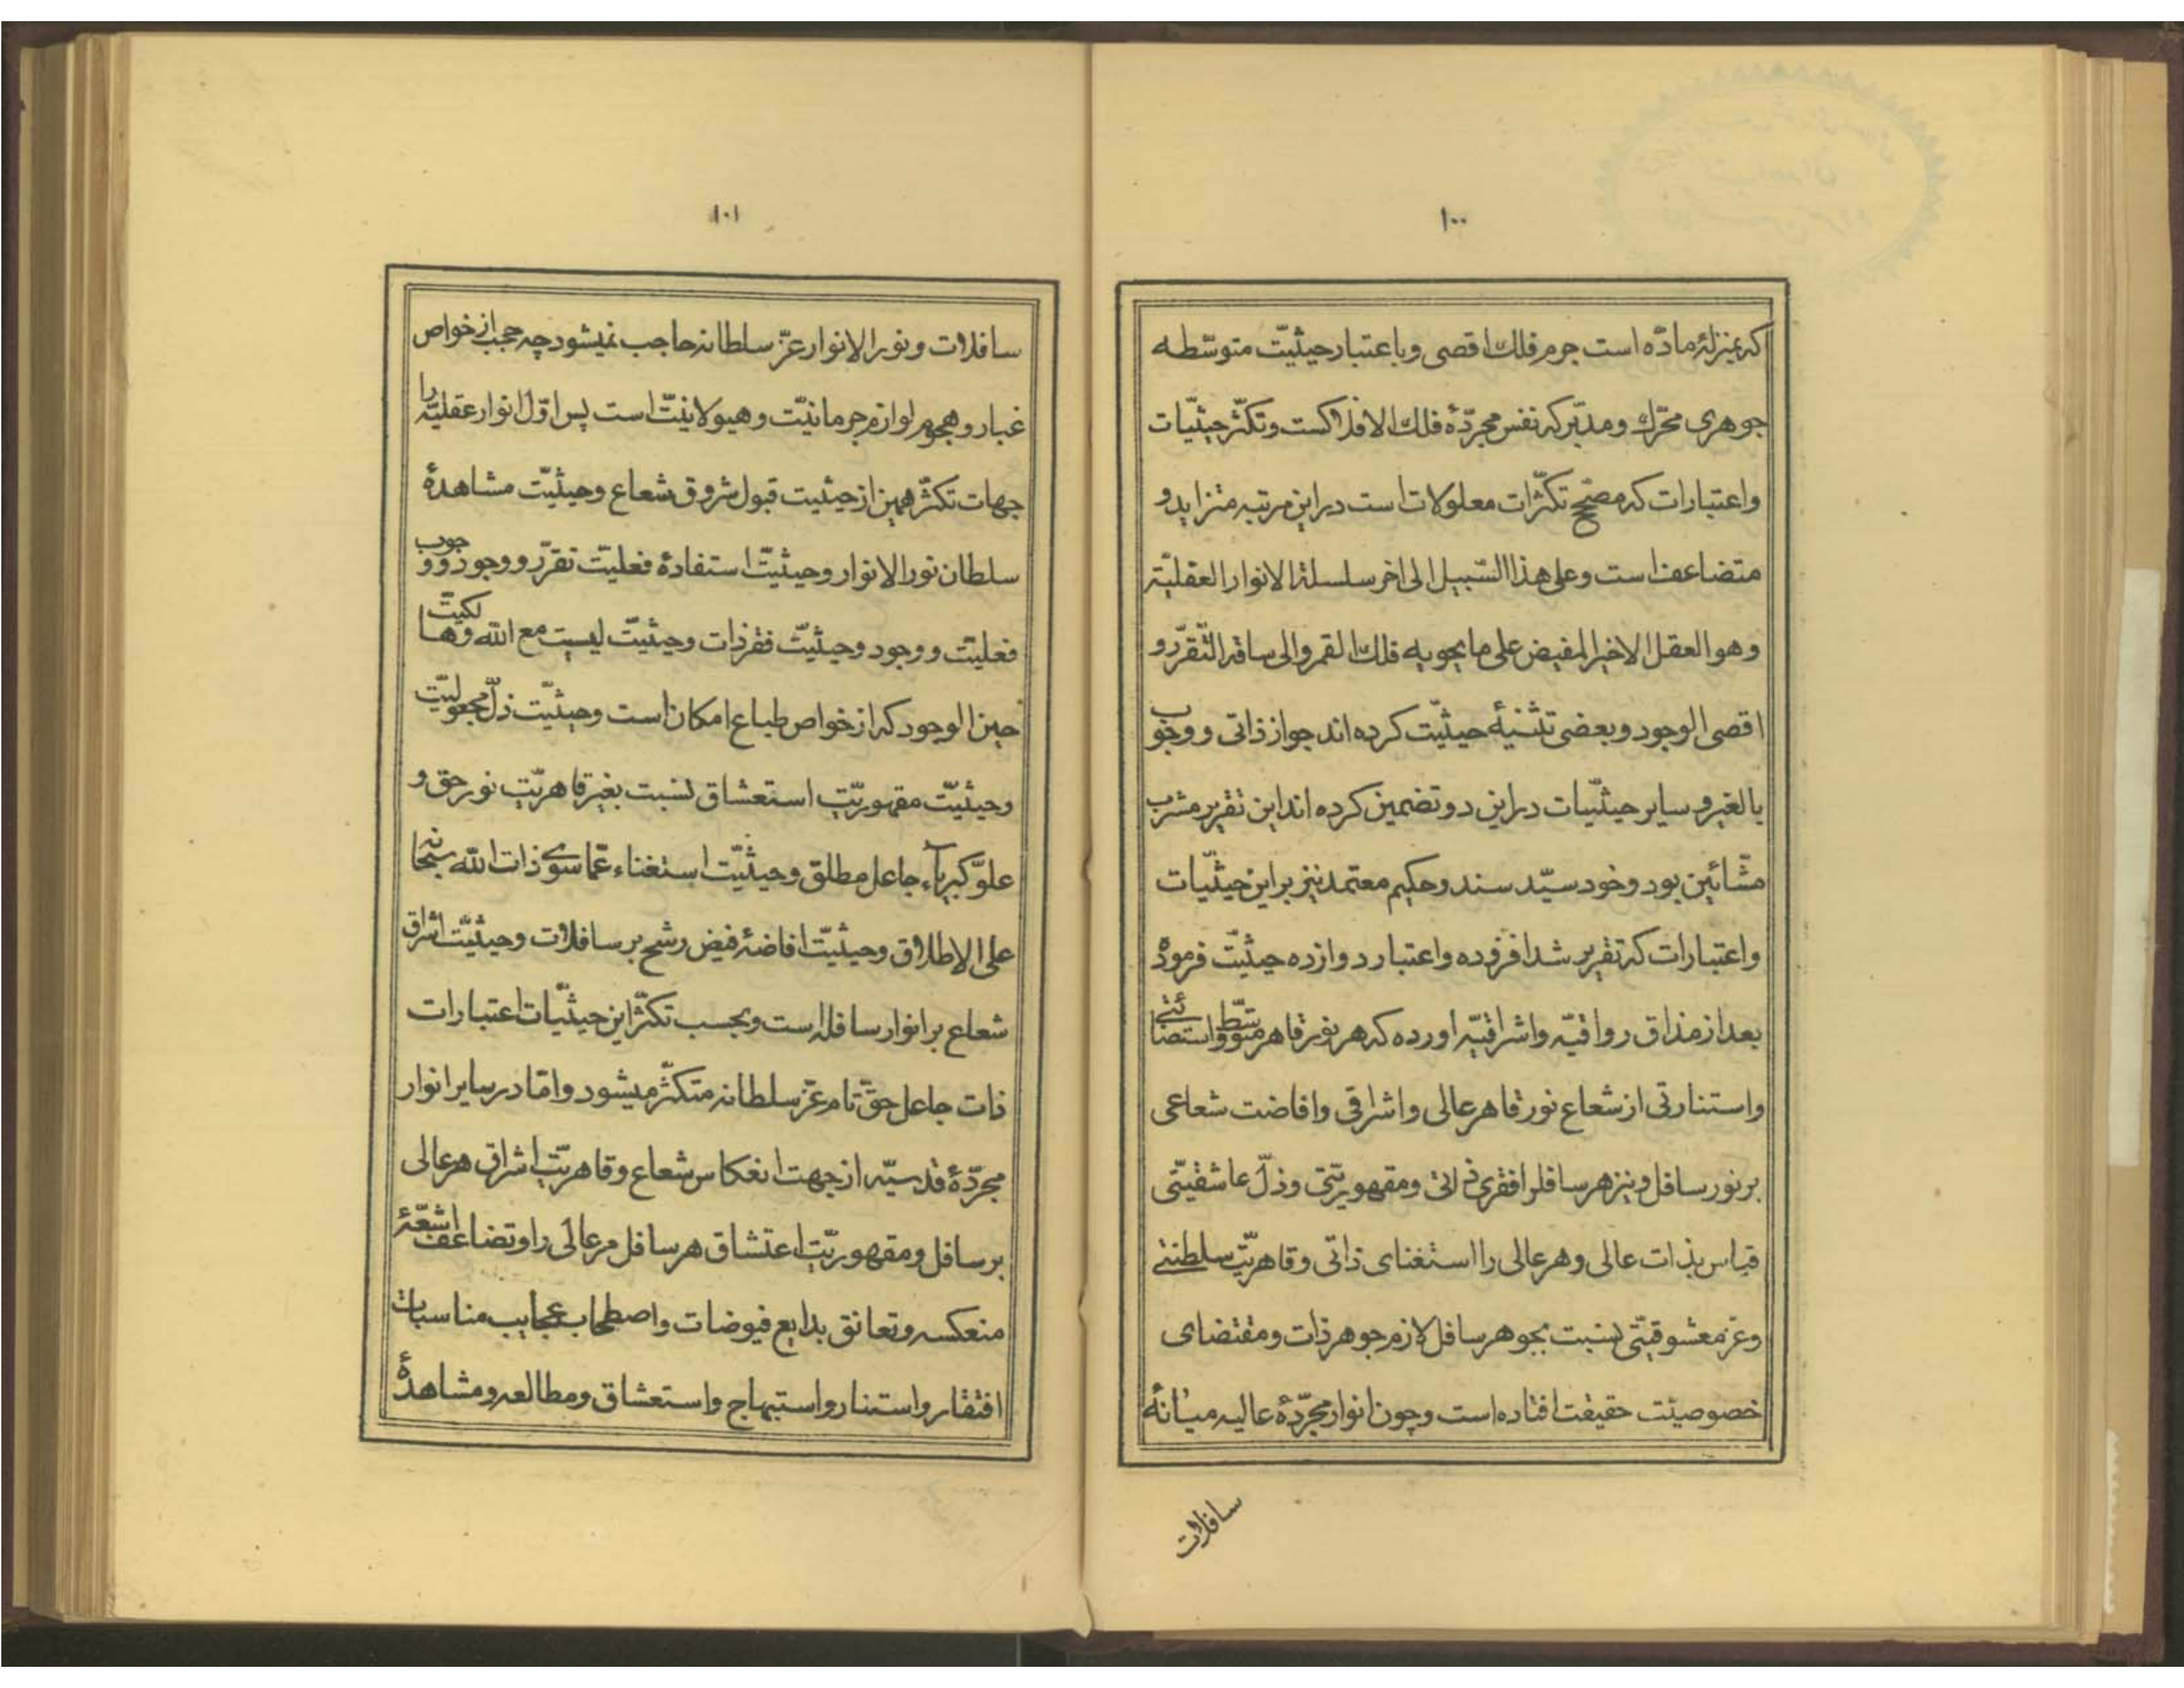 ۱۰۰
که بمنزلهٔ مادّه است جرم فلک اقصی و باعتبار حیثیّت متوسّطه
جوهری محرّک و مدبّر که نفس مجرّدهٔ فلک الافلاکست و تکثّر حیثیّات
واعتبارات که مصحّح تکثّرات معلولات است در این مرتبه متزاید و
متضاعف است وعلی هذا السّبیل الی اخر سلسلة الانوار العقلیّة
وهو العقل الاخیر المفیض علی ما یحویه فلک القمر والی ساقة التّقرّر و
اقصی الوجود و بعضی تثنیهٔ حیثیّت کرده اند جواز ذاتی و وجوب
بالغیر و سایر حیثیّات در این دو تضمین کرده اند این تقریر مشرب
مشّائین بود و خود سیّد سند و حکیم معتمد نیز بر این حیثیّات
واعتبارات که تقریر شد افزوده واعتبار دوازده حیثیّت فرموده
بعد از مذاق رواقیّه واشراقیّه اورده که هر نور قاهر متوسّط واستضائتی
واستنارتی از شعاع نور قاهر عالی واشراقی وافاضت شعاعی
بر نور سافل و نیز هر سافلرا فقری ذاتی ومقهوریّتی وذلّ عاشقیّتی
قیاس بذات عالی وهر عالی را استغنای ذاتی وقاهریّت سلطنتی
وعز معشوقیّتی نسبت بجوهر سافل لازم جوهر ذات ومقتضای
خصوصیّت حقیقت افتاده است وچون انوار مجرّدهٔ عالیه میانهٔ
سافلات
۱۰۱
سافلات ونور الانوار عزّ سلطانه حاجب نمیشود چه حجب از خواص
غبار وهجوم لوازم جرمانیّت وهیولانیّت است پس اوّل انوار عقلیّه را
جهات تکثّر همین از حیثیت قبول شروق شعاع وحیثیّت مشاهدهٔ
سلطان نور الانوار وحیثیّت استفادهٔ فعلیّت تقرّر ووجود ووجوب
فعلیّت ووجود وحیثیّت فقر ذات وحیثیّت لیسیت مع الله وهالکیّت
حین الوجود که از خواص طباع امکان است وحیثیّت ذلّ مجعولیّت
وحیثیّت مقهوریّت استعشاق نسبت بغیر قاهریّت نور حق و
علوّ کبریاء جاعل مطلق وحیثیّت استغناء عمّا سوی ذات الله سبحانه
علی الاطلاق وحیثیّت افاضهٔ فیض رشح بر سافلات وحیثیّت اشراق
شعاع بر انوار سافله است وبحسب تکثّر این حیثیّات اعتبارات
ذات جاعل حقّ تام عزّ سلطانه متکثّر میشود وامّا در سایر انوار
مجرّدهٔ قدسیّه از جهت انعکاس شعاع وقاهریّت اشراق هر عالی
بر سافل ومقهوریّت اعتشاق هر سافل مر عالی را وتضاعف اشعّهٔ
منعکسه وتعانق بدایع فیوضات واصطحاب عجایب مناسبات
افتقار واستنار واستبهاج واستعشاق ومطالعه ومشاهدهٔ